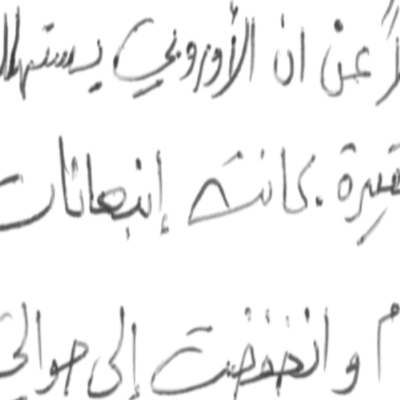 عن ان الأوروبي يستهلا
كانت إنبعاثات
م وانخفضت إلى حوالي